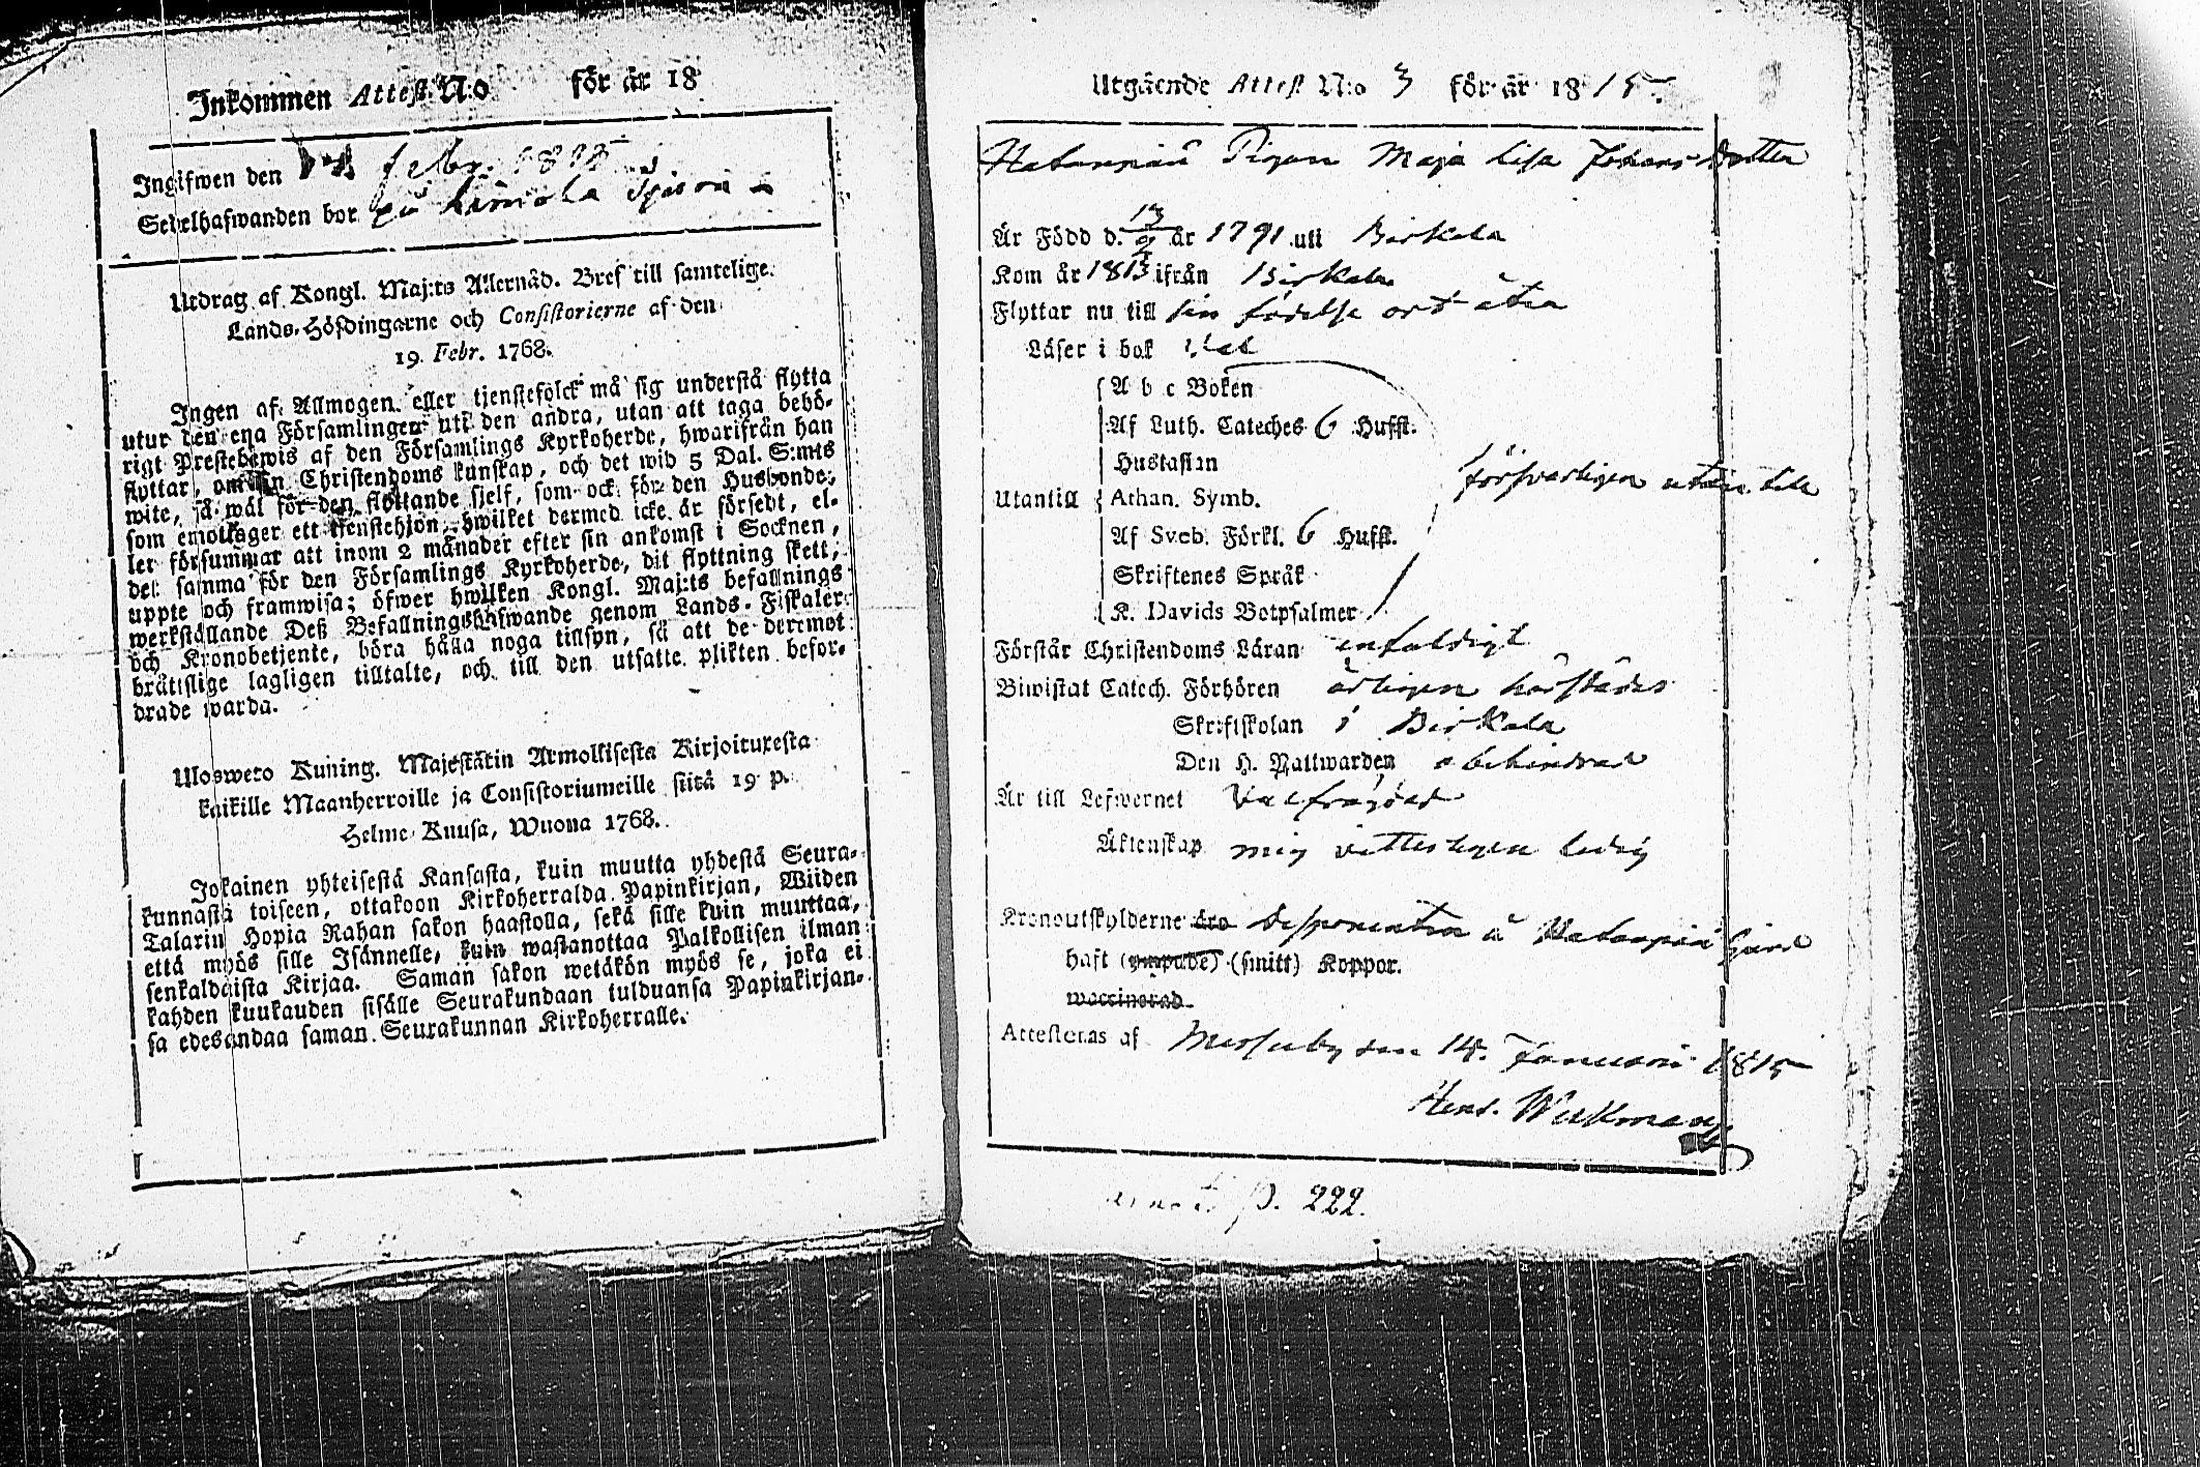 Inkommen Attest. N:o för år 18
Ingifwen den 14 febr. 1815
Sedelhafwanden bor på
Utdrag af Kongl. Maj:ts Allernåd. Bref till samtelige
Lands-Höfdingarne och Consistorierne af den
19 Febr. 1768.
Ingen af Allmogen eller tjenstefolck må sig understå flytta
utur den ena Församlingen uti den andra, utan att taga behö-
rigt Prestebewis af den Församlings Kyrkoherde, hwarifrån han
flyttar, om sin Christendoms kunskap, och det wid 5 Dal. S:mts
wite, så wäl för den flyttande sjelf, som ock för den Husbonde,
som emottager ett tjenstehjon, hwilket dermed icke är försedt, el-
ler försummar att inom 2 månader efter sin ankomst i Socknen,
det samma för den Församlings Kyrkoherde, dit flyttning skett,
uppte och framwisa; öfwer hwilken Kongl. Maj:ts befallnings
werkställande Deß Befallningshafwande genom Lands-Fiskaler
och Kronobetjente, böra hålla noga tillsyn, så att de deremot
bråttslige lagligen tilltalte, och till den utsatte plikten befor-
drade warda.
Ulosweto Kuning. Majestätin Armollisesta Kirjoituxesta
kaikille Maanherroille ja Consistoriumeille siitä 19 p.
Helme-Kuusa, Wuona 1768.
Jokainen yhteisestä Kansasta, kuin muutta yhdestä Seura-
kunnasta toiseen, ottakoon Kirkoherralda Papinkirjan, Wiiden
Talarin Hopia Rahan sakon haastolla, sekä sille kuin muuttaa,
että myös sille Isännelle, kuin wastanottaa Palkollisen ilman
senkaldaista Kirjaa. Saman sakon wetäkön myös se, joka ei
kahden kuukauden sisälle Seurakundaan tulduansa Papinkirjan-
sa edesandaa saman Seurakunnan Kirkoherralle.
Utgående Attest N:o 3 för år 1815.
Hatanpää Pigan Maja Lisa Johansdotter
Är Född d. 13/9 år 1791 uti Birkala
Kom år 1813 ifrån Birkala
Flyttar nu till sin födelse ort åter
Läser i bok väl
A b c Boken
Af Luth. Cateches 6 Hufst.
Hustaflan
Utantill Athan. Symb. försvarligen utan till
Af Sveb. Förkl. 6 Hufst.
Skriftenes Språk
K. Davids Botpsalmer
Förstår Christendoms Läran enfaldigt
Biwistat Catech. Förhören årligen härstädes
Skriftskolan i Birkala
Den H. Nattwarden obehindrad
Är till Lefwernet välfrägdad
Äktenskap mig vetterligen ledig
Kronoutskylderne äro Desponentern å Hatanpää Gård
haft (ympade) (smitt) Koppor.
waccinerad
Attesteras af Messuby den 14. Januari 1815
Henr. Wilkman
p. 222.